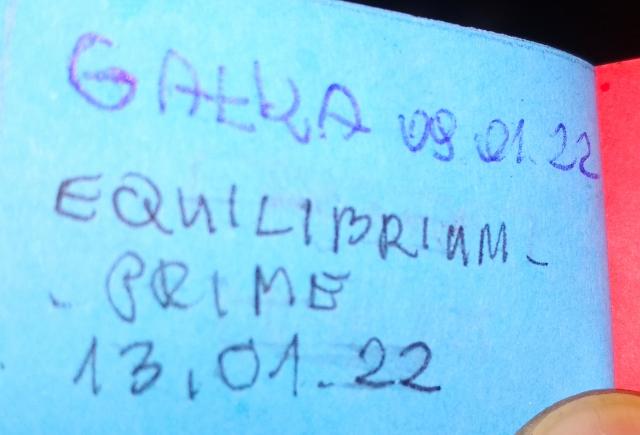 GAŁKA 09.01.22
EQUILIBRIUM-
-PRIME
13.01.22